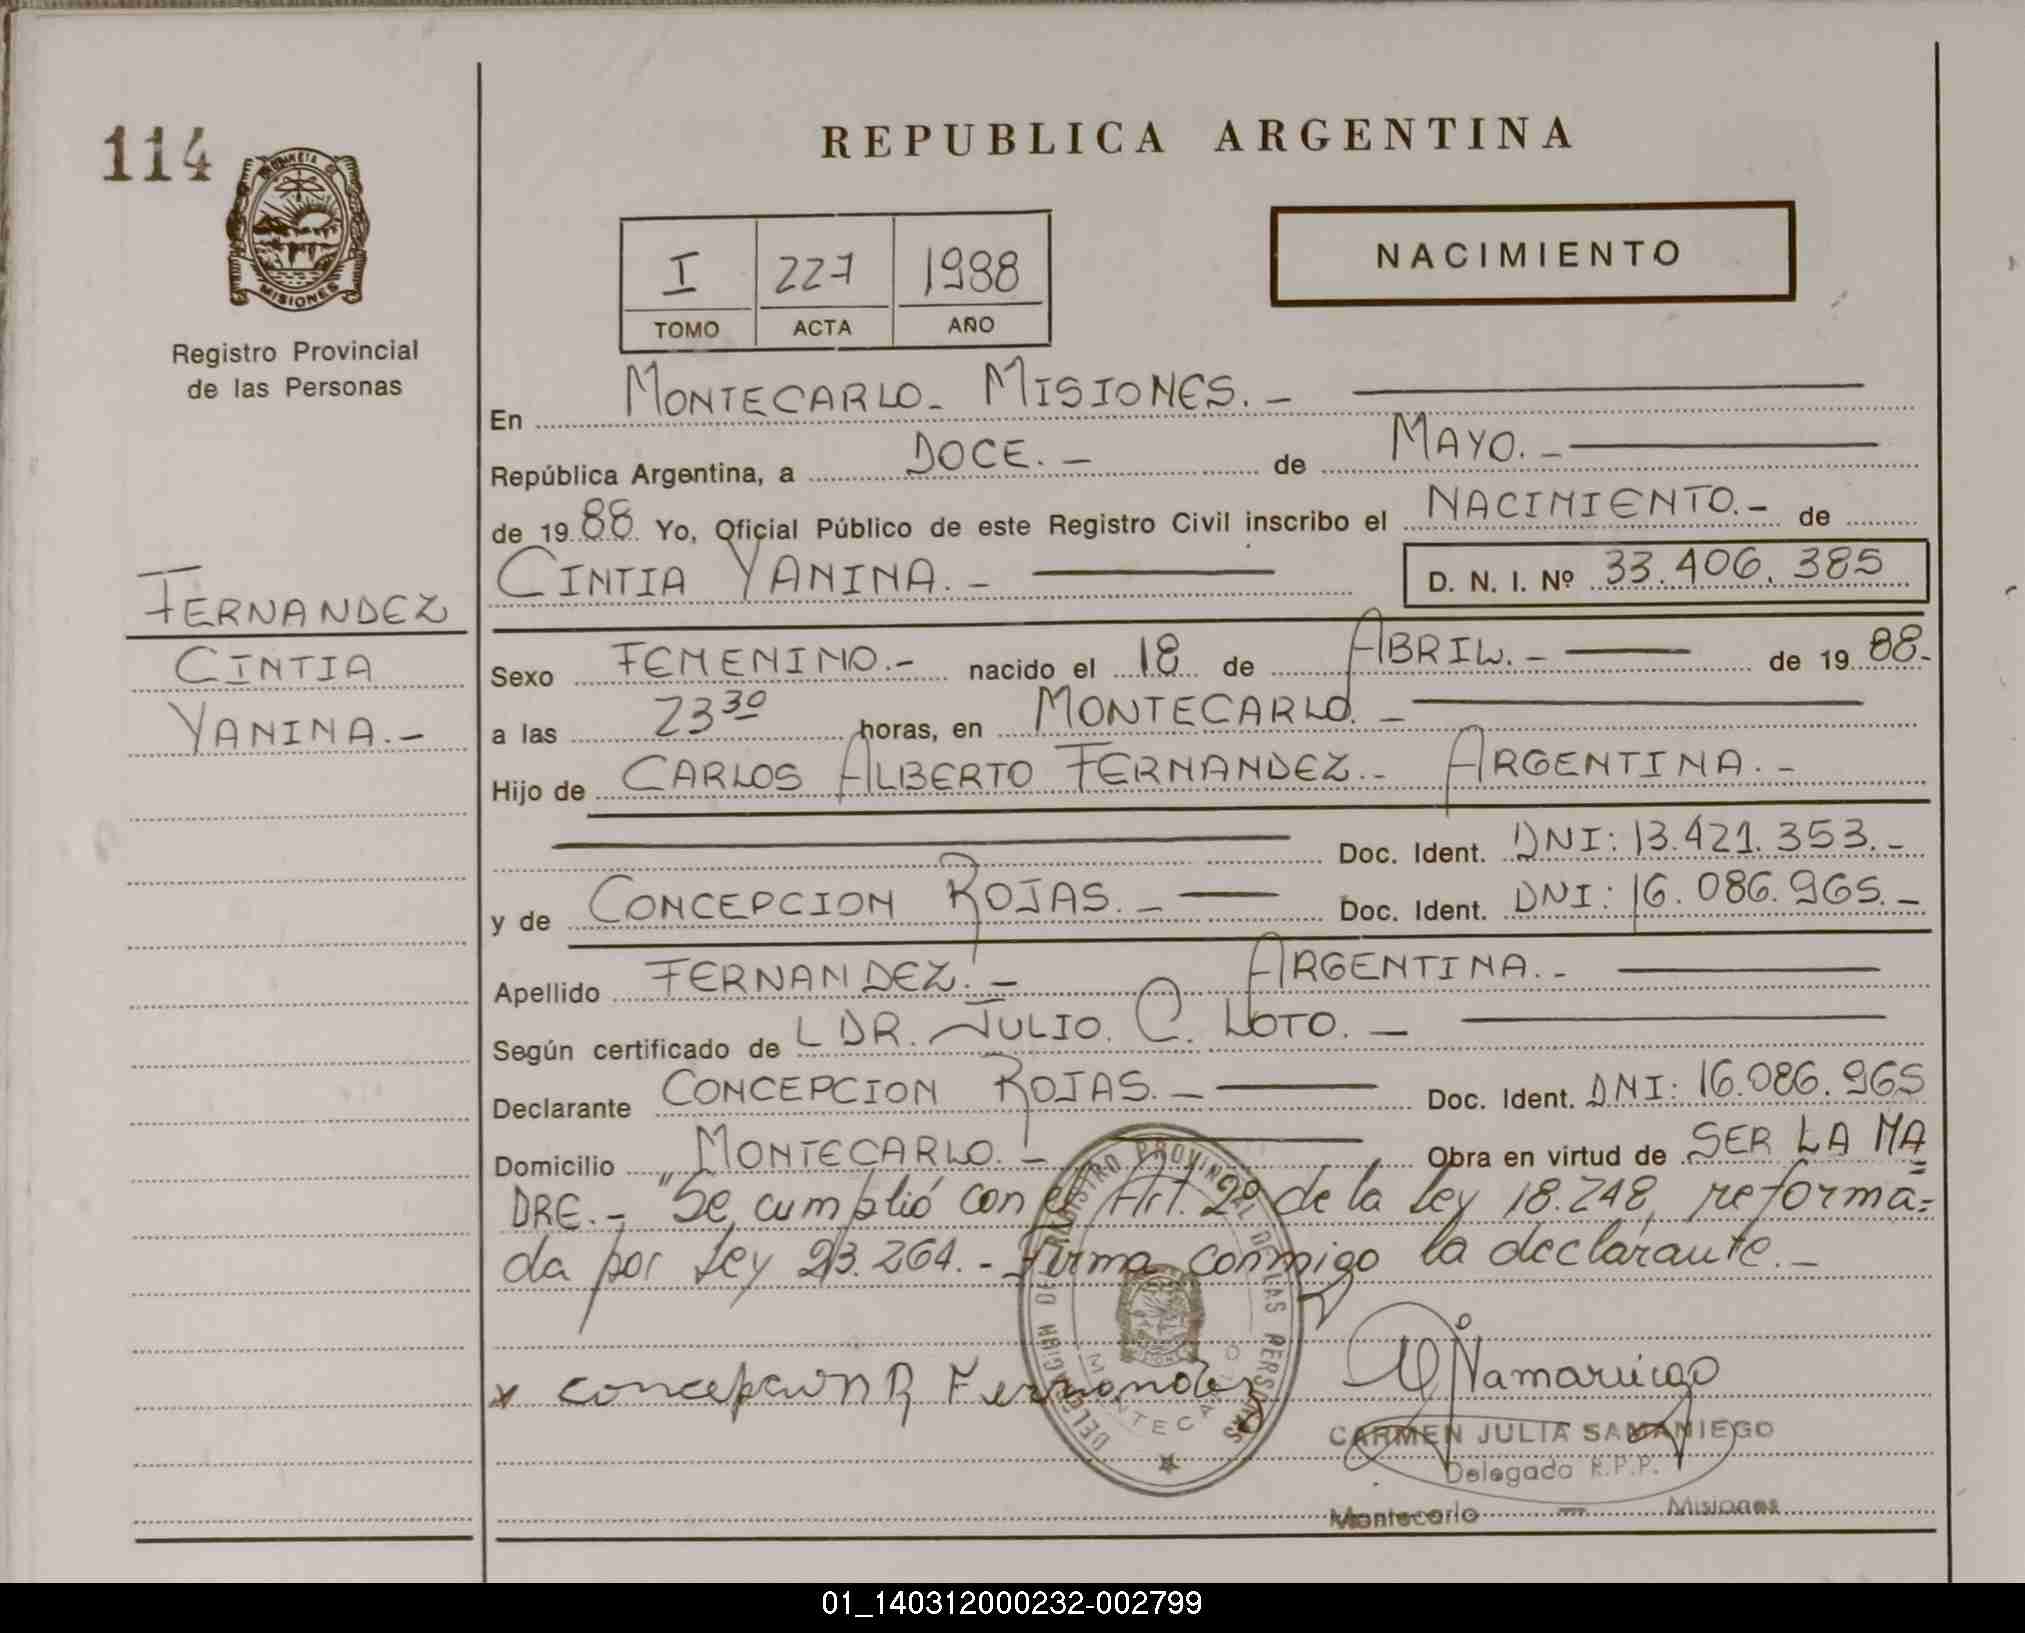 114
REPUBLICA ARGENTINA
MISIONES
Registro Provincial
de las Personas
I 227 1988
TOMO ACTA AÑO
NACIMIENTO
En MONTECARLO - MISIONES. -
República Argentina, a DOCE. - de MAYO. -
de 1988 Yo, Oficial Público de este Registro Civil inscribo el NACIMIENTO. - de
CINTIA YANINA. - D. N. I. Nº 33.406.385
FERNANDEZ
CINTIA
YANINA. -
Sexo FEMENINO. - nacido el 18 de ABRIL. - de 1988-
a las 23 30 horas, en MONTECARLO. -
Hijo de CARLOS ALBERTO FERNANDEZ. - ARGENTINA. -
Doc. Ident. DNI: 13.421.353. -
y de CONCEPCION ROJAS. - Doc. Ident. DNI: 16.086.965. -
Apellido FERNANDEZ. - ARGENTINA. -
Según certificado de L DR. JULIO. C. LOTO. -
Declarante CONCEPCION ROJAS. - Doc. Ident. DNI: 16.086.965
Domicilio MONTECARLO. - Obra en virtud de SER LA MA=
DRE. - "Se cumplió con el Art. 2º de la Ley 18.248, reforma=
da por Ley 23.264. - Firma conmigo la declarante. -
x concepcion R Fernandez
DELEGACION DEL REGISTRO PROVINCIAL DE LAS PERSONAS
MONTECARLO
CARMEN JULIA SAMANIEGO
Delegado R.P.P.
Montecarlo - Misiones
01_140312000232-002799